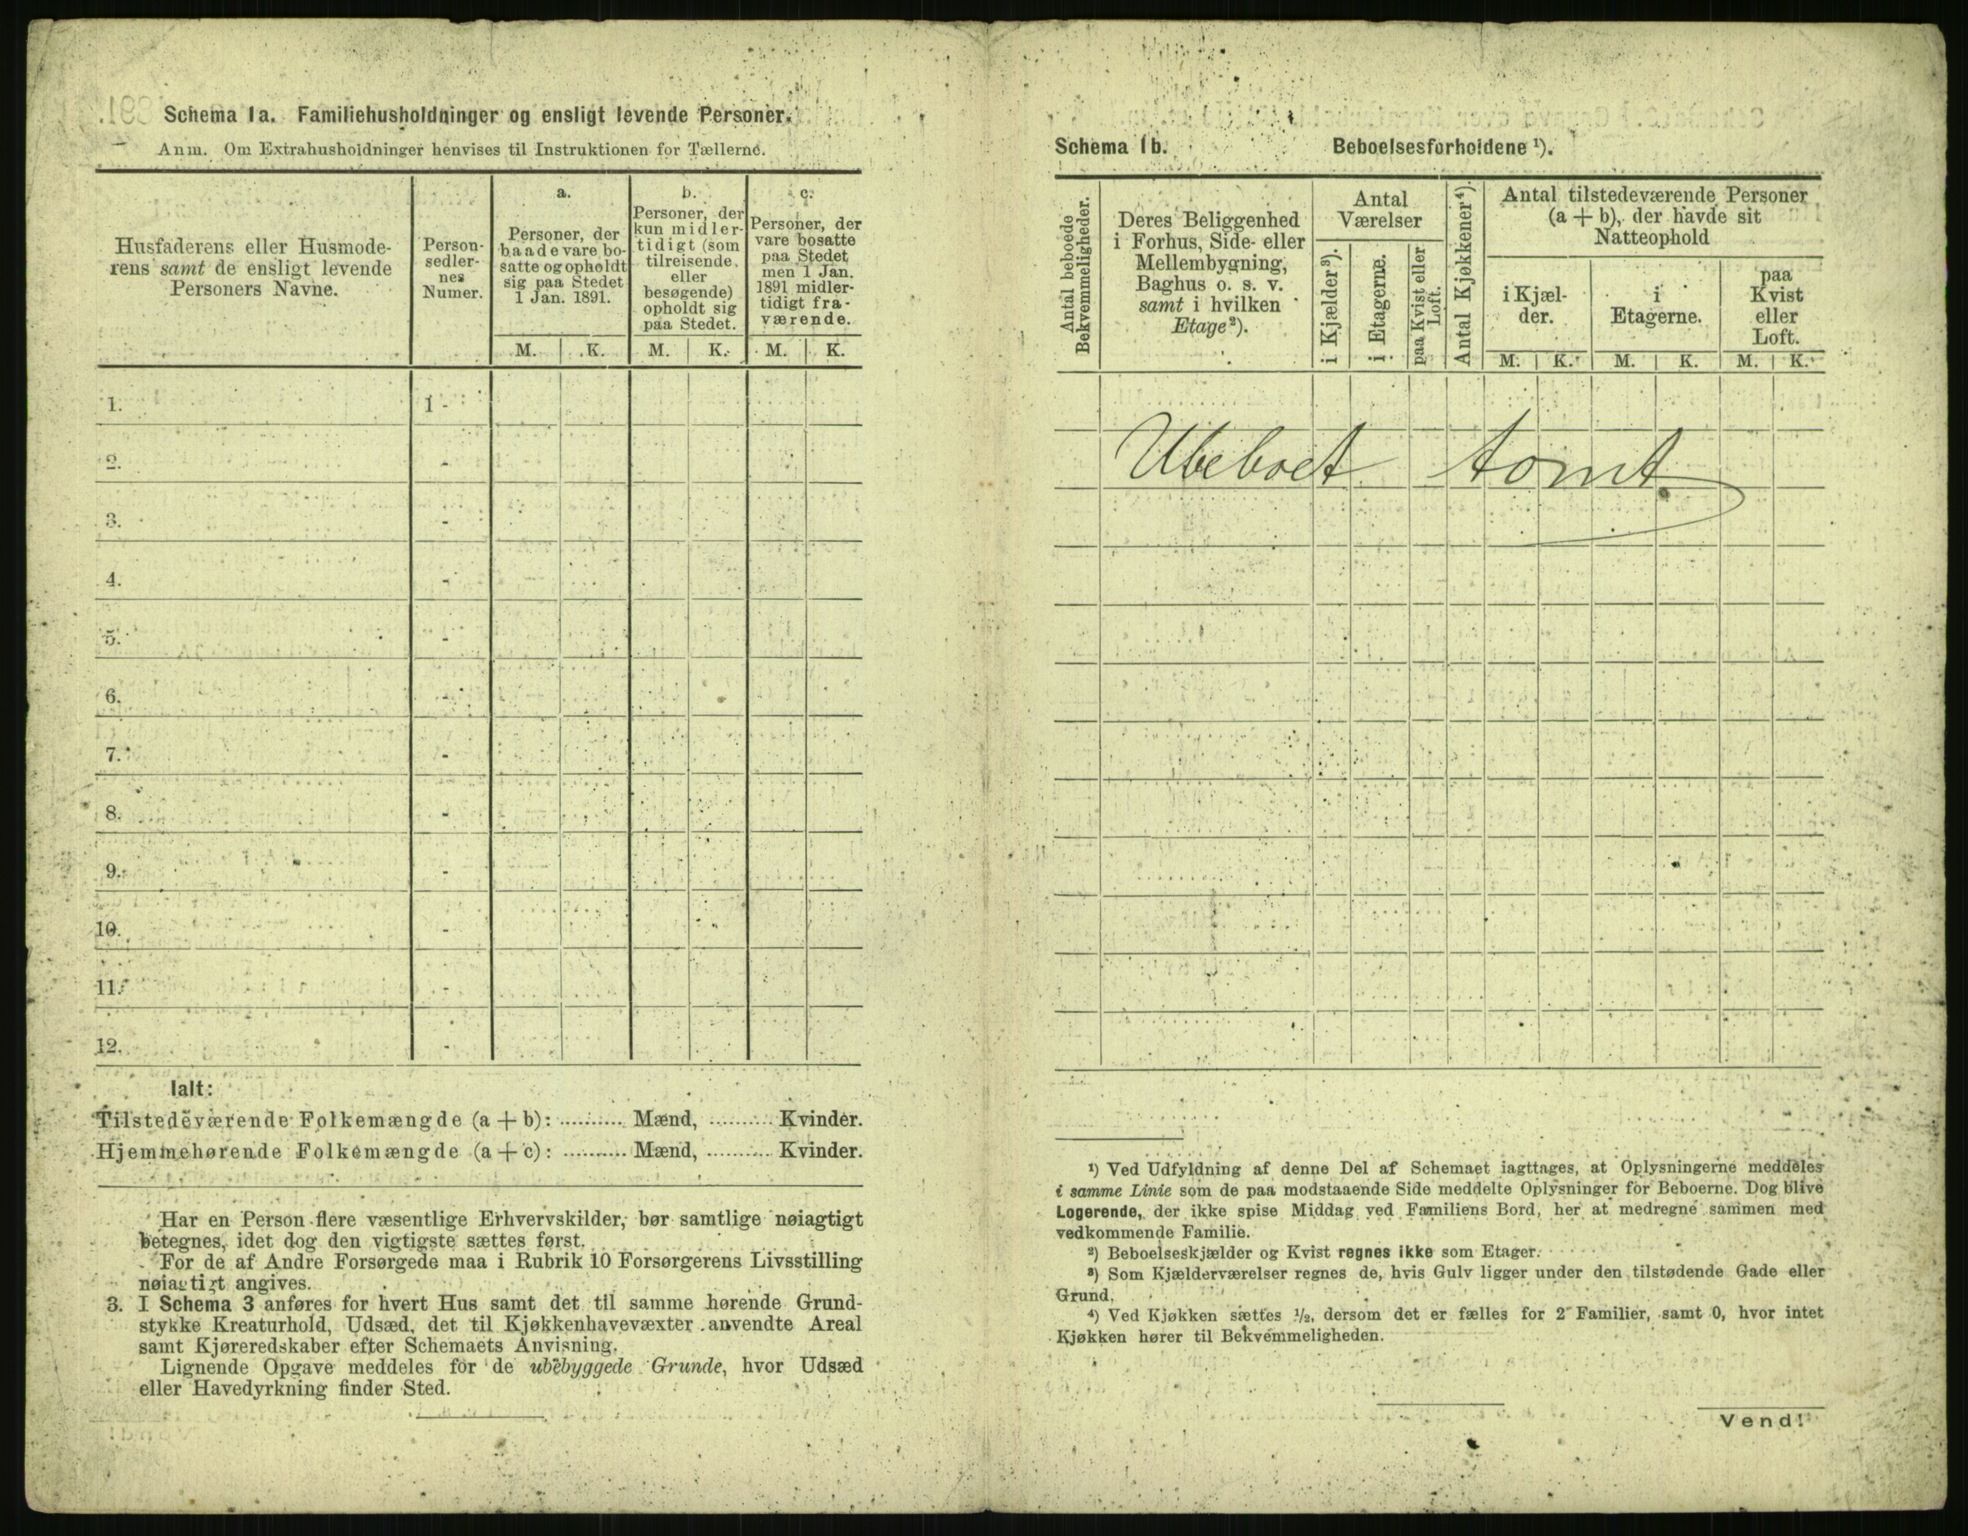 Schema 1a. Familiehusholdninger og ensligt levende Personer.
Anm. Om Extrahusholdninger henvises til Instruktionen for Tællerne.
Husfaderens eller Husmode-
rens samt de ensligt levende
Personers Navne.
Person-
sedler-
nes
Numer.
a.
Personer, der
baade vare bo-
satte og opholdt
sig paa Stedet
1 Jan. 1891.
b.
Personer, der
kun midler-
tidigt (som
tilreisende
eller
besøgende)
opholdt sig
paa Stedet.
c.
Personer, der
vare bosatte
paa Stedet
men 1 Jan.
1891 midler-
tidigt fra-
værende.
M. K. M. K. M. K.
1. 1 -
2. -
3. -
4. -
5. -
6. -
7. -
8. -
9. -
10. -
11. -
12. -
Ialt:
Tilstedeværende Folkemængde (a + b): .......... Mænd, .......... Kvinder.
Hjemmehørende Folkemængde (a + c): .......... Mænd, .......... Kvinder.
Har en Person flere væsentlige Erhvervskilder, bør samtlige nøiagtigt
betegnes, idet dog den vigtigste sættes først.
For de af Andre Forsørgede maa i Rubrik 10 Forsørgerens Livsstilling
nøiagtigt angives.
3. I Schema 3 anføres for hvert Hus samt det til samme hørende Grund-
stykke Kreaturhold, Udsæd, det til Kjøkkenhavevæxter anvendte Areal
samt Kjøreredskaber efter Schemaets Anvisning.
Lignende Opgave meddeles for de ubebyggede Grunde, hvor Udsæd
eller Havedyrkning finder Sted.
Schema 1b. Beboelsesforholdene ¹).
Antal beboede
Bekvemmeligheder.
Deres Beliggenhed
i Forhus, Side- eller
Mellembygning,
Baghus o. s. v.
samt i hvilken
Etage²).
Antal
Værelser
i Kjælder³).
i Etagerne.
paa Kvist eller
Loft.
Antal Kjøkkener⁴).
Antal tilstedeværende Personer
(a + b), der havde sit
Natteophold
i Kjæl-
der.
i
Etagerne.
paa
Kvist
eller
Loft.
M. K. M. K. M. K.
Ubeboet tomt.
¹) Ved Udfyldning af denne Del af Schemaet iagttages, at Oplysningerne meddeles
i samme Linie som de paa modstaaende Side meddelte Oplysninger for Beboerne. Dog blive
Logerende, der ikke spise Middag ved Familiens Bord, her at medregne sammen med
vedkommende Familie.
²) Beboelseskjælder og Kvist regnes ikke som Etager.
³) Som Kjælderværelser regnes de, hvis Gulv ligger under den tilstødende Gade eller
Grund.
⁴) Ved Kjøkken sættes ½, dersom det er fælles for 2 Familier, samt 0, hvor intet
Kjøkken hører til Bekvemmeligheden.
Vend!